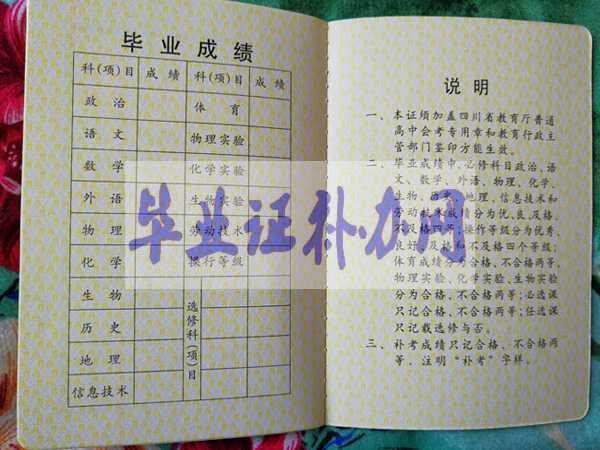 毕业成绩
科(项)目 成绩 科(项)目 成绩
政治 体育
语文 物理实验
数学 化学实验
外语 生物实验
物理 劳动技术
化学 操行等级
生物
历史
地理
信息技术
选修科(项)目
毕业证补办网
说明
一、本证须加盖四川省教育厅普通
高中会考专用章和教育行政主
管部门鉴印方能生效。
二、毕业成绩中,必修科目政治、语
文、数学、外语、物理、化学、
生物、历史、地理、信息技术和
劳动技术成绩分为优、良、及格、
不及格四等;操行等级分为优秀、
良好、及格和不及格四个等级;
体育成绩分为合格、不合格两等;
物理实验、化学实验、生物实验
分为合格、不合格两等;必选课
只记合格、不合格两等;任选课
只记载选修与否。
三、补考成绩只记合格、不合格两
等,注明“补考”字样。